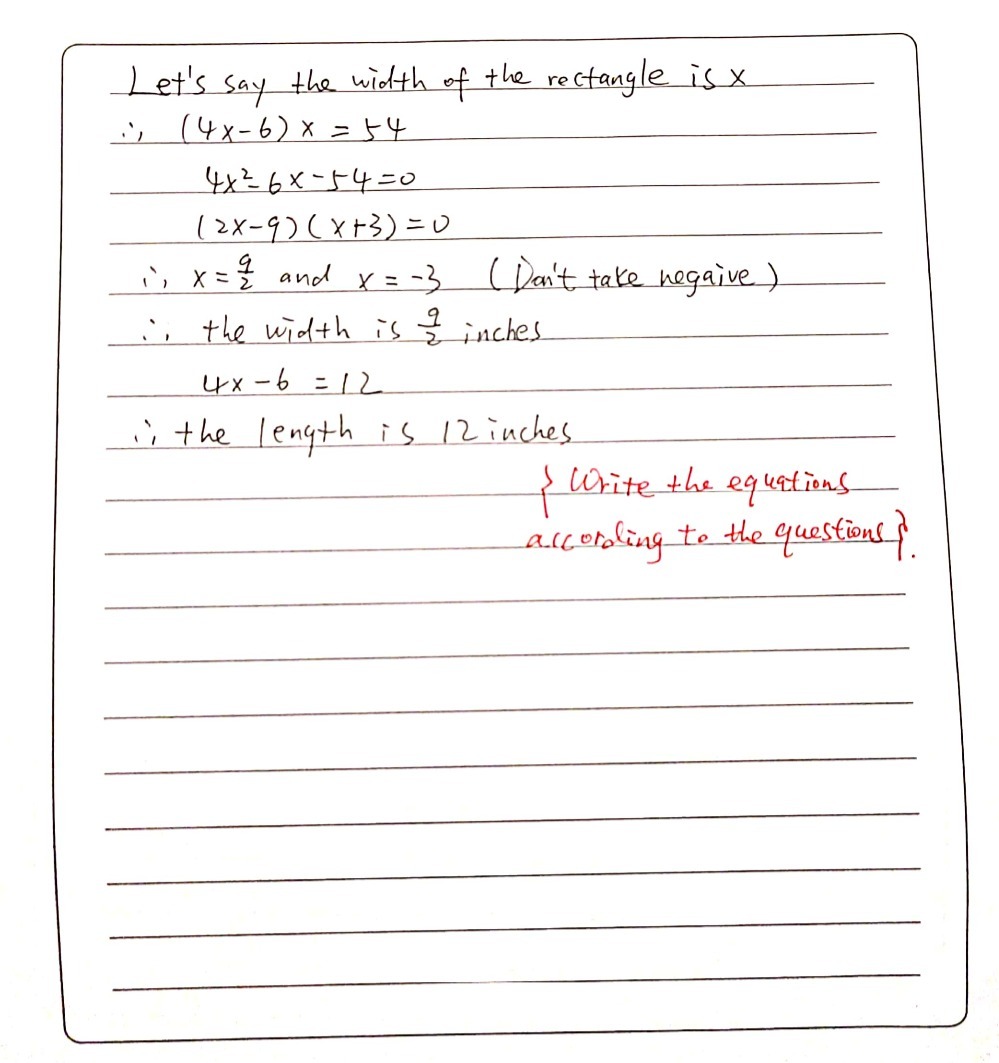 Let's say the width of the rectangle is x
∴ (4x-6) x = 54
4x²-6x-54=0
(2x-9)(x+3)=0
∴ x=9/2 and x=-3 (Don't take negaive)
∴ the width is 9/2 inches
4x-6 =12
∴ the length is 12 inches
{ Write the equations
according to the questions }.